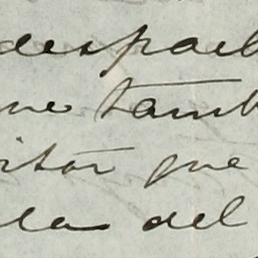 despach
ue tamb
itor que
la del